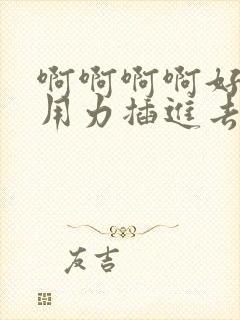 啊啊啊啊好
用力插進去
友吉